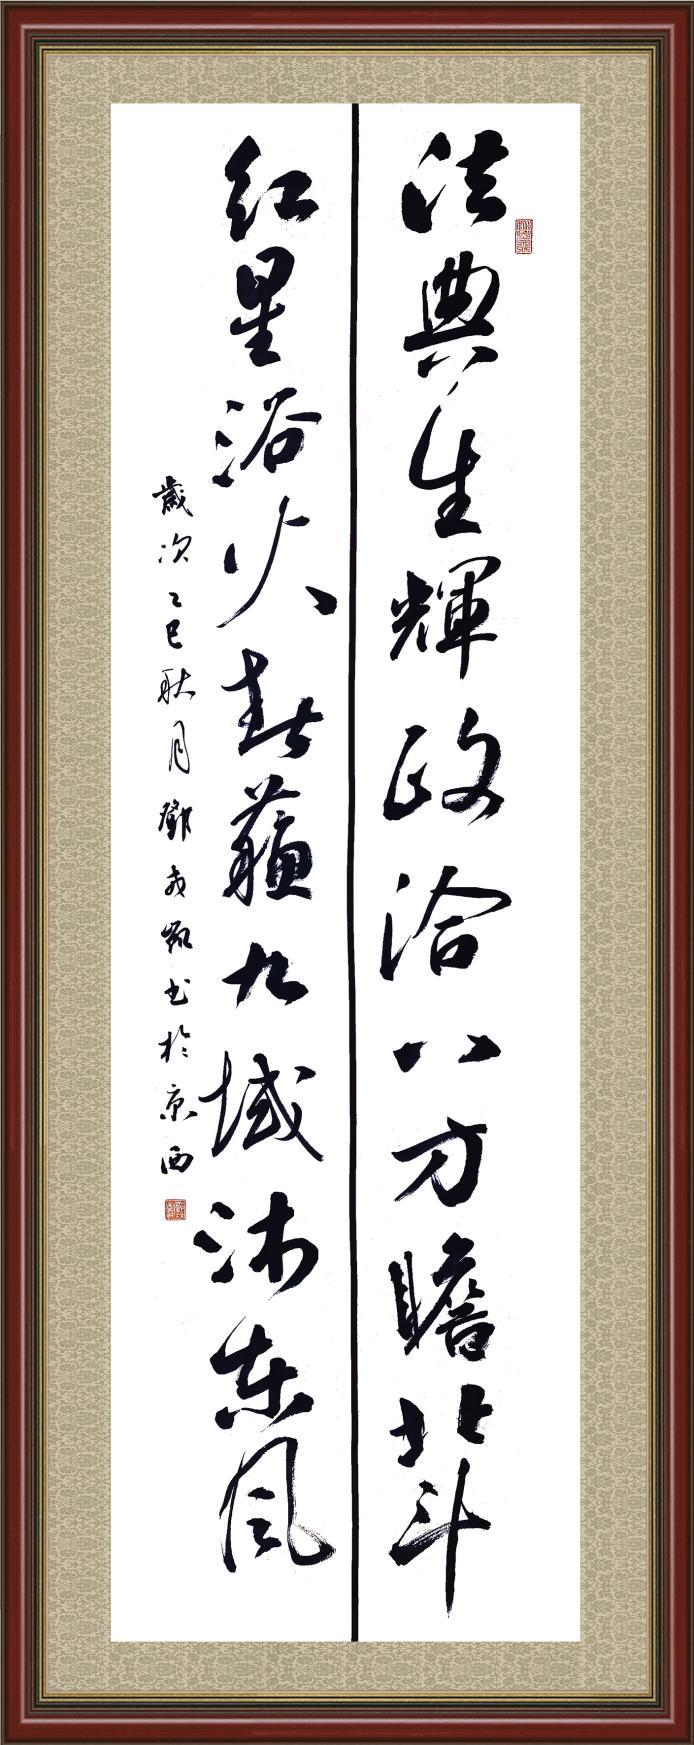 法典生輝政洽八方瞻北斗
红星浴火春蘇九域沐东风
歲次乙巳秋月鄧成凱书於京西